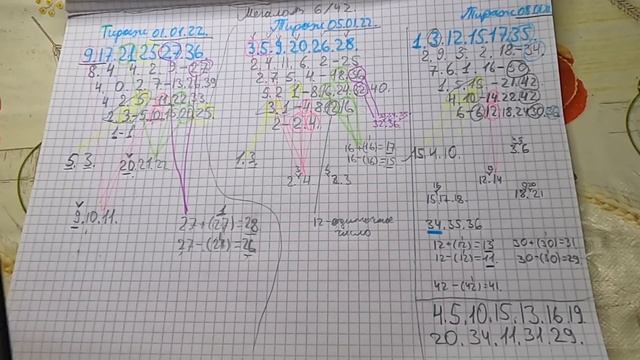 Мегалот 6/42.
Тираж 01.01.22.
9.17.21.25.27.36
4.2.5-11.22.73
1-1
5.3.
20.21.22
9.10.11.
27+(27)=28
27-(27)=26
Тираж 05.01.22
3.5.9.20.26.28.
2.4.11.6.2-25
2.7.5.4-18.36
5.2.1-8.16.24.32.40.
3.1-4.8.12.16
2-2.4.
32.36.
1.3.
2.4
2.3
16+(16)=17
16-(16)=15
12-одиночное
число
Тираж 08.01.22
1.3.12.15.17.35.
2.9.3.2.18-34
7.6.1.16-30
1.5.15-21.42
4.10-14.22.42
6-6.12.18.24.30.36
15.4.10.
12.14
3.6
15.17.18.
18.21
34.35.36
12+(12)=13
12-(12)=11.
30+(30)=31
30-(30)=29
42-(42)=41.
4.5.10.15.13.16.19
20.34.11.31.29.